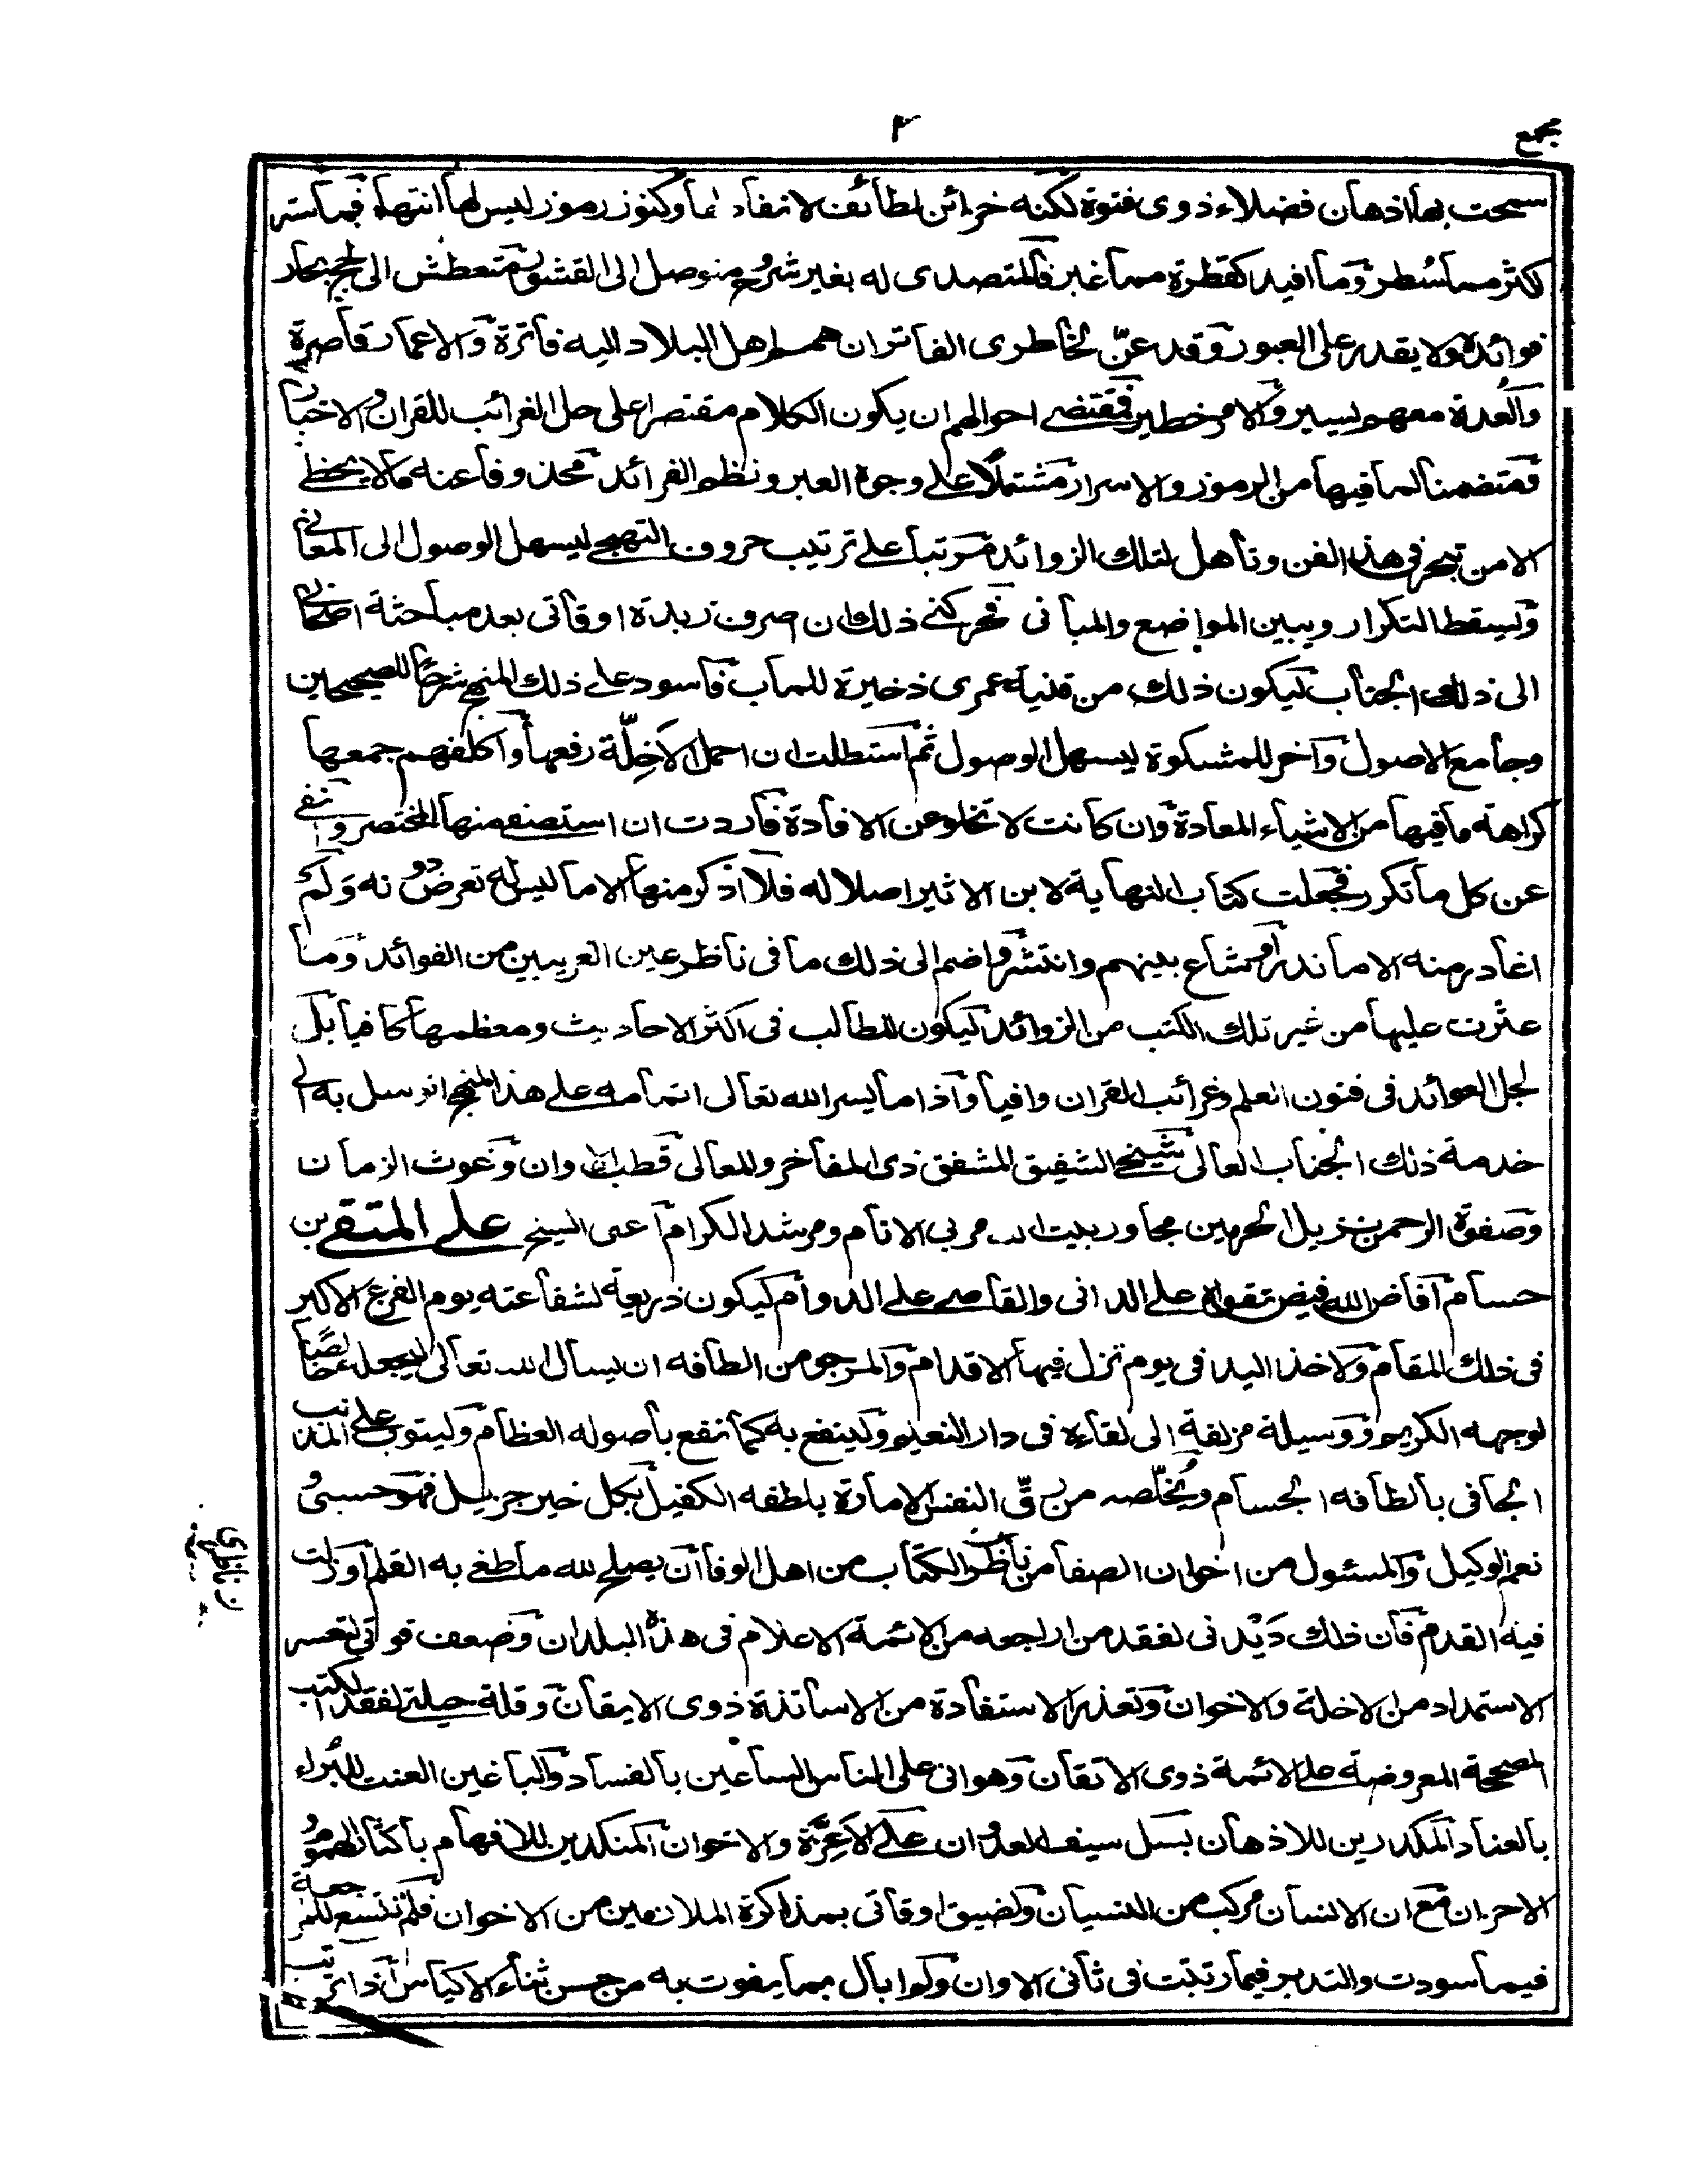 مجمع
٢
سمحت بها اذهان فضلاء ذوى فتوة لكنه خزائن لطائف لا نفاد لها وكنوز رموز ليس لها انتهاء فما ستر
اكثر مما سُطر وما افيد كقطرة مما غبر فالمتصدى له بغير شروح منه وصل الى القشور متعطش الى لجج بحار
فوائده ولا يقدر على العبور وقد عنّ لخاطرى الفاتر ان همم اهل البلاد اليه فاترة والاعمار قاصرة
والعُدة معهم يسير والامر خطير فمقتضى احوالهم ان يكون الكلام مقتصرا على حل الغرائب للقران والاخبار
فمتضمنا لما فيها من الرموز والاسرار مشتملا على وجوه العبر ونظم الفرائد محذوفا عنه مالا يحظى
الا من تبحر فى هذا الفن وتأهل لتلك الزوائد مرتبا على ترتيب حروف التهجى ليسهل الوصول الى المعانى
ويسقط التكرار ويبين المواضع والمبانى فحركنى ذلك ان اصرف زبدة اوقاتى بعد مباحثة اخوانى
الى ذلك الجناب ليكون ذلك من قنية عمرى ذخيرة للمآب فاسود على ذلك المنهج شرحًا للصحيحين
وجامع الاصول وآخر للمشكوة ليسهل الوصول ثم استطلت ان احمل الاخِلّة رفعها وأكلفهم جمعها
كراهة ما فيها من الاشياء المعادة وان كانت لا تخلو عن الافادة فاردت ان استصفى منها المختصر وانفى
عن كل ما تكرر فجعلت كتاب النهاية لابن الاثير اصلا له فلا اذكر منها الا ما ليس له تعرض دونه ولم
اغادر منه الا ما ندر او شاع بينهم وانتشر واضم الى ذلك ما فى ناظر عين الغريبين من الفوائد وما
عثرت عليها من غير تلك الكتب من الزوائد ليكون للطالب فى اكثر الاحاديث ومعظمها كافيا بل
لجل العوائد فى فنون العلم وغرائب القران وافيا واذا ما يسر الله تعالى اتمامه على هذا المنهج اتوسل به الى
خدمة ذلك الجناب العالى شيخى الشفيق المشفق ذى المفاخر والمعالى قطب الاوان وغوث الزمان
وصفوة الرحمن نزيل الحرمين مجاور بيت الله مربى الانام ومرشد الكرام اعنى الشيخ على المتقى بن
حسام افاض الله فيض تقواه على الدانى والقاصى على الدوام ليكون ذريعة لشفاعته يوم الفزع الاكبر
فى ذلك المقام ولاخذ اليد فى يوم تزل فيها الاقدام والمرجو من الطافه ان يسأل الله تعالى ليجعله خالصًا
لوجهه الكريم ووسيلة مزلفة الى لقاءه فى دار النعيم ولينفع به كما نفع باصوله العظام وليتوب على المذنب
الجافى بالطافه الجسام ويُخلّصه من رقّ النفس الامارة بلطفه الكفيل بكل خير جزيل فهو حسبى و
نعم الوكيل والمسئول من اخوان الصفا من ناظر الكتاب من اهل الوفا ان يصلح لله ما طغى به القلم او زلت
فيه القدم فان ذلك دَيْدنى لفقد من اراجعه من الائمة الاعلام فى هذه البلدان وضعف قوتى لتعسر
الاستمداد من الاخلة والاخوان وتعذر الاستفادة من الاساتذة ذوى الايقان وقلة حيلتى لفقد الكتب
المصححة المعروضة على الائمة ذوى الاتقان وهوانى على الناس الساعين بالفساد والباغين العنت للبُراء
بالعناد المكدرين للاذهان بسل سيف العدوان على الاعِزَّة والاخوان المنكدين للافهام باكتئاب الهموم و
الاحزان مع ان الانسان مركب من النسيان ولضيق اوقاتى بمذاكرة الملازمين من الاخوان فلم تتسع للمراجعة
فيما سودت والتدبر فيما رتبت فى ثانى الاوان ولم ابال بما يفوت به من حسن ثناء الاكياس اذ اترتب